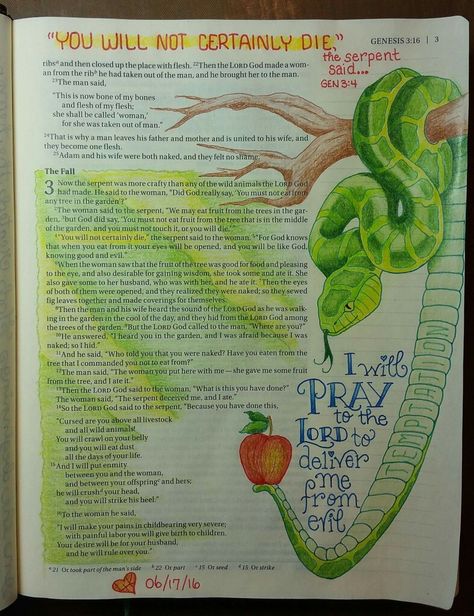 "YOU WILL NOT CERTAINLY DIE,"
GENESIS 3:16 | 3
the serpent
said...
GEN 3:4
ribsᵃ and then closed up the place with flesh. ²²Then the LORD God made a wom-
an from the ribᵇ he had taken out of the man, and he brought her to the man.
²³The man said,
"This is now bone of my bones
and flesh of my flesh;
she shall be called 'woman,'
for she was taken out of man."
²⁴That is why a man leaves his father and mother and is united to his wife, and
they become one flesh.
²⁵Adam and his wife were both naked, and they felt no shame.
The Fall
3 Now the serpent was more crafty than any of the wild animals the LORD God
had made. He said to the woman, "Did God really say, 'You must not eat from
any tree in the garden'?"
²The woman said to the serpent, "We may eat fruit from the trees in the gar-
den, ³but God did say, 'You must not eat fruit from the tree that is in the middle
of the garden, and you must not touch it, or you will die.'"
⁴"You will not certainly die," the serpent said to the woman. ⁵"For God knows
that when you eat from it your eyes will be opened, and you will be like God,
knowing good and evil."
⁶When the woman saw that the fruit of the tree was good for food and pleasing
to the eye, and also desirable for gaining wisdom, she took some and ate it. She
also gave some to her husband, who was with her, and he ate it. ⁷Then the eyes
of both of them were opened, and they realized they were naked; so they sewed
fig leaves together and made coverings for themselves.
⁸Then the man and his wife heard the sound of the LORD God as he was walk-
ing in the garden in the cool of the day, and they hid from the LORD God among
the trees of the garden. ⁹But the LORD God called to the man, "Where are you?"
¹⁰He answered, "I heard you in the garden, and I was afraid because I was
naked; so I hid."
¹¹And he said, "Who told you that you were naked? Have you eaten from the
tree that I commanded you not to eat from?"
¹²The man said, "The woman you put here with me—she gave me some fruit
from the tree, and I ate it."
¹³Then the LORD God said to the woman, "What is this you have done?"
The woman said, "The serpent deceived me, and I ate."
¹⁴So the LORD God said to the serpent, "Because you have done this,
"Cursed are you above all livestock
and all wild animals!
You will crawl on your belly
and you will eat dust
all the days of your life.
¹⁵And I will put enmity
between you and the woman,
and between your offspringᶜ and hers;
he will crushᵈ your head,
and you will strike his heel."
¹⁶To the woman he said,
"I will make your pains in childbearing very severe;
with painful labor you will give birth to children.
Your desire will be for your husband,
and he will rule over you."
ᵃ 21 Or took part of the man's side ᵇ 22 Or part ᶜ 15 Or seed ᵈ 15 Or strike
I will
PRAY
to the
LORD to
deliver
me
from
evil
TEMPTATION
06/17/16